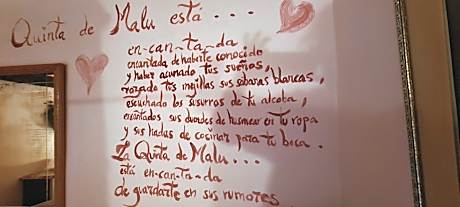 Quinta de Malu está...
en-can-ta-da
encantada de haberte conocido
y haber acunado tus sueños,
rozado tus mejillas sus sábanas blancas,
escuchado los susurros de tu alcoba,
encantados sus duendes de husmear en tu ropa
y sus hadas de cocinar para tu boca.
La Quinta de Malu...
está en-can-ta-da
de guardarte en sus rumores